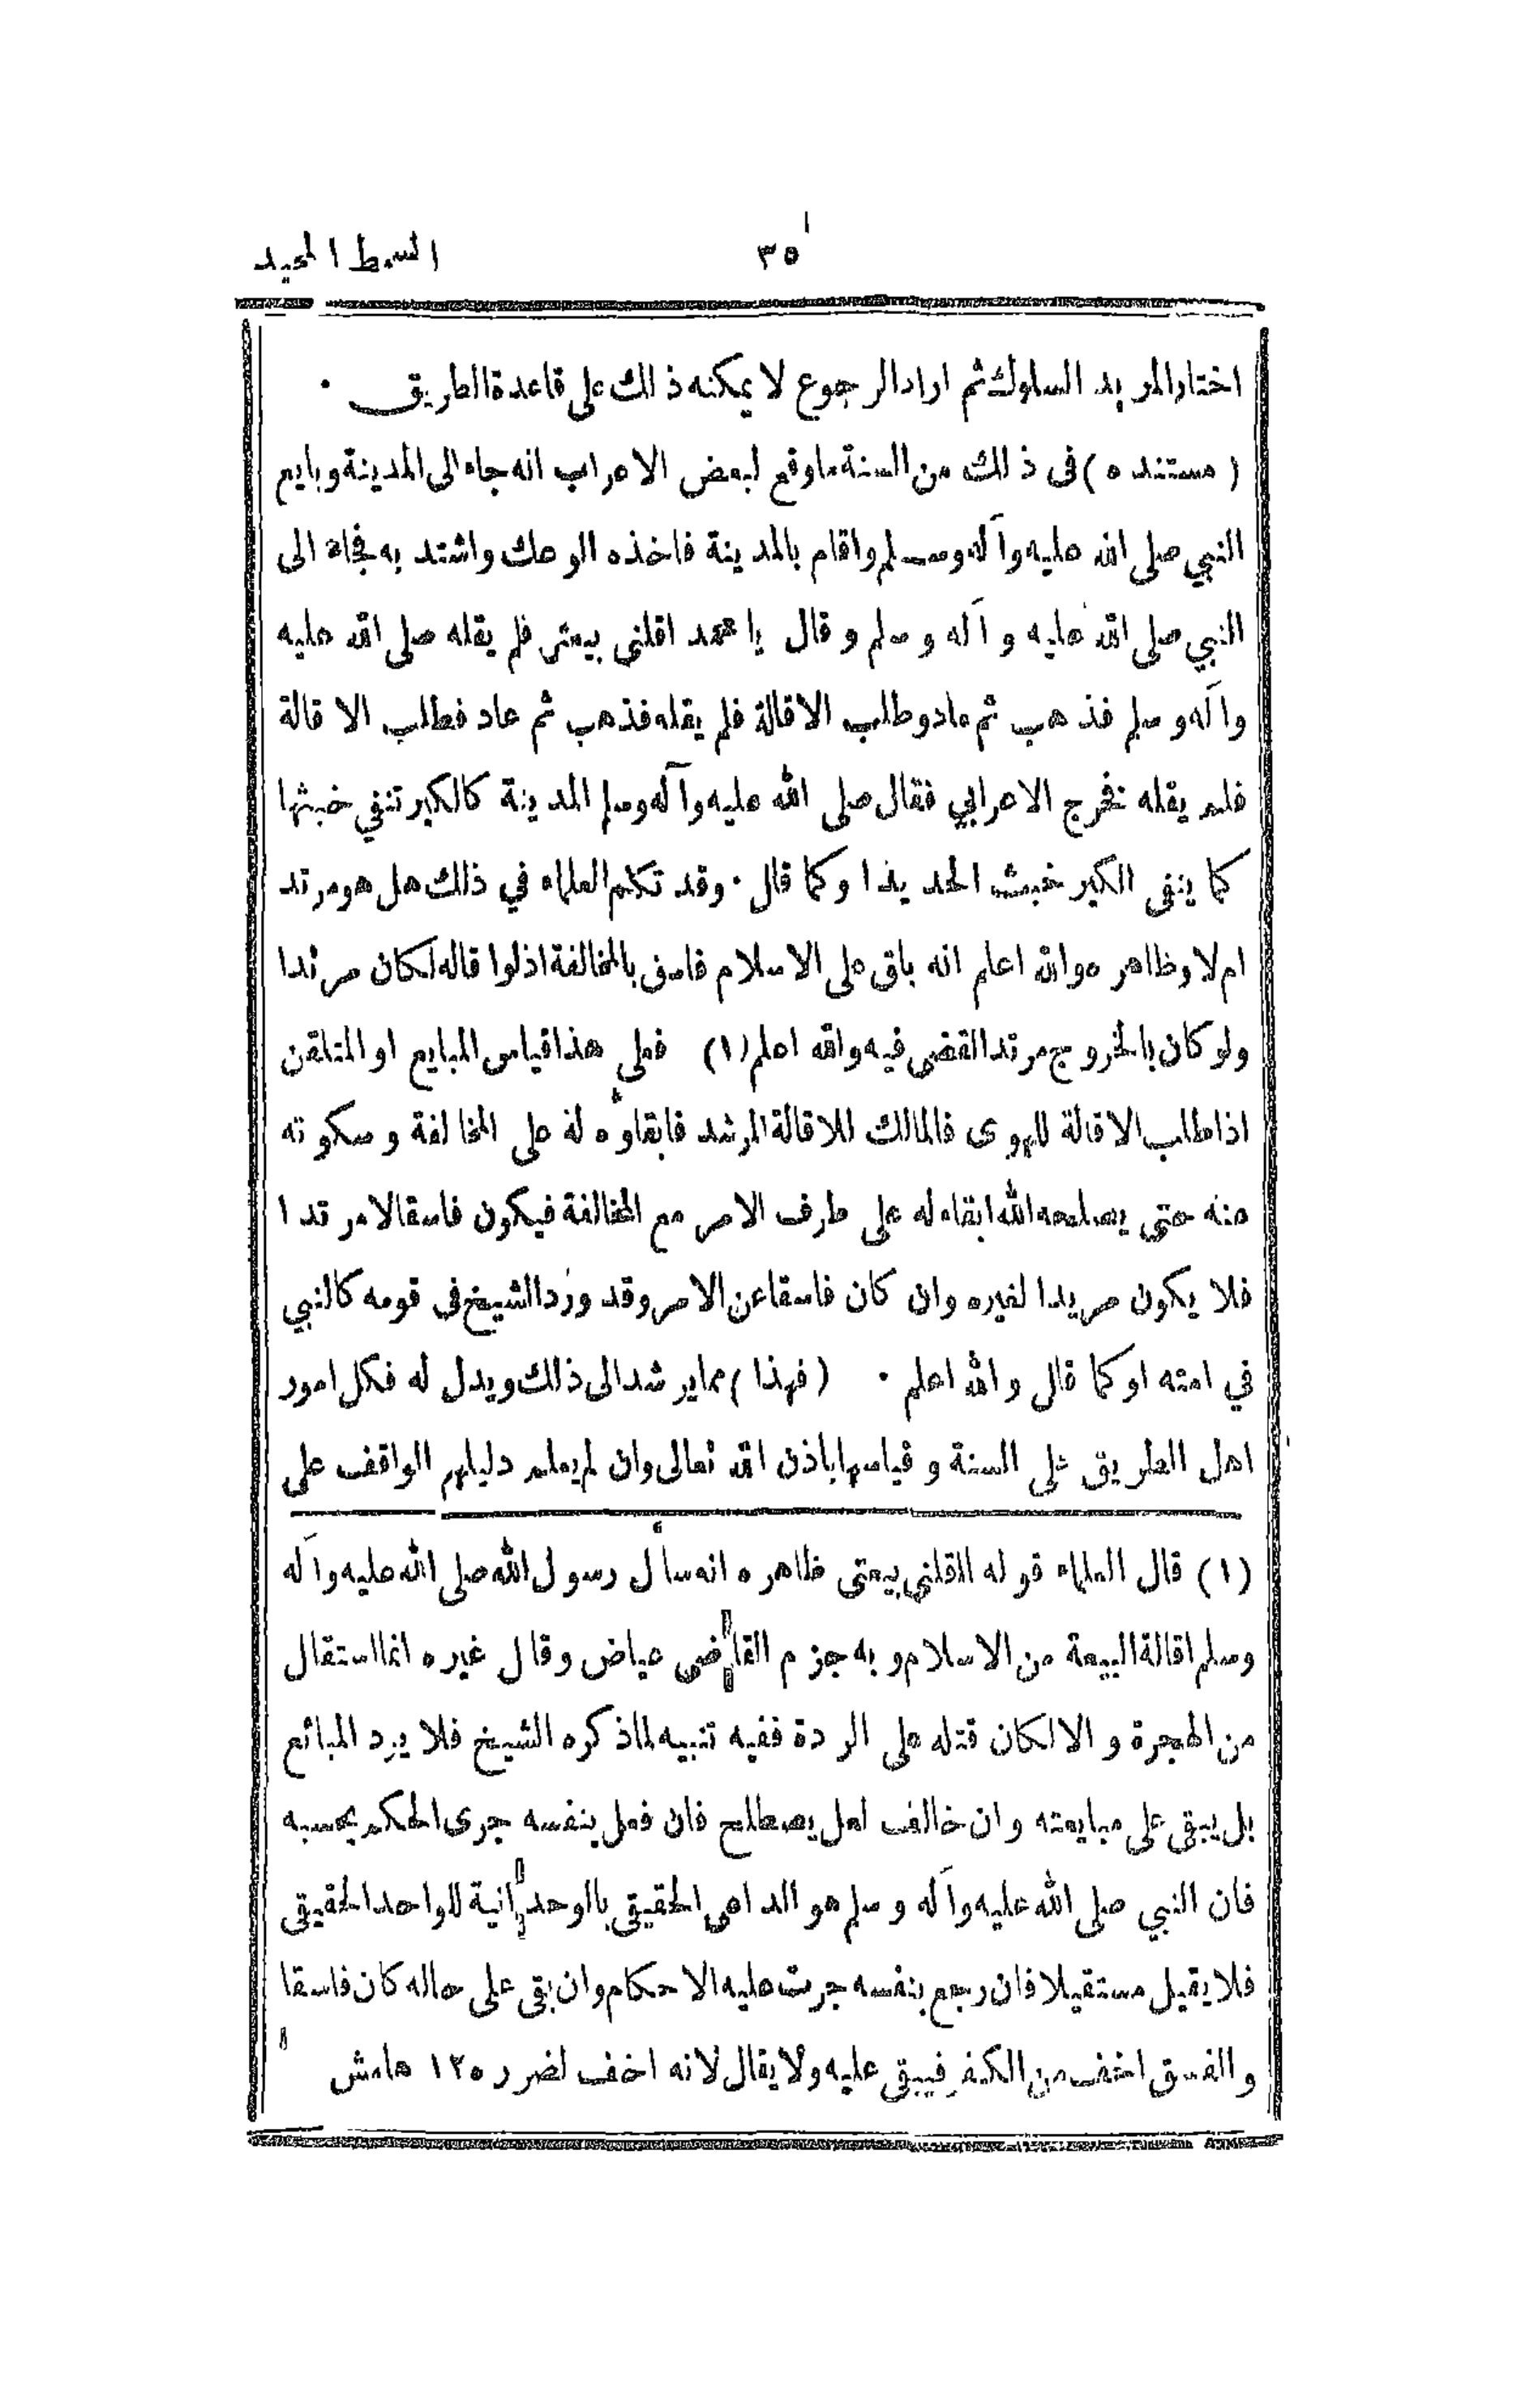 ٣٥ السمط المجيد
اختار المريد السلوك ثم اراد الرجوع لا يمكنه ذلك على قاعدة الطريق ٠
(مستنده) فى ذلك من السنة ما وقع لبعض الاعراب انه جاء الى المدينة وبايع
النبي صلى الله عليه وآله وسلم واقام بالمدينة فاخذه الوعك واشتد به فجاء الى
النبي صلى الله عليه وآله وسلم وقال يا محمد اقلنى بيعتى فلم يقله صلى الله عليه
وآله وسلم فذهب ثم عاد وطلب الاقالة فلم يقله فذهب ثم عاد فطلب الاقالة
فلم يقله فخرج الاعرابي فقال صلى الله عليه وآله وسلم المدينة كالكير تنفي خبثها
كما ينفى الكير خبث الحديد او كما قال ٠ وقد تكلم العلماء في ذلك هل هو مرتد
ام لا وظاهره والله اعلم انه باق على الاسلام فاسق بالمخالفة اذ لو اقاله لكان مرتدا
ولو كان بالخروج مرتدا لقضى فيه والله اعلم (١) فعلى هذا قياس المبايع او المتلقن
اذا طلب الاقالة للهوى فالمالك للاقالة المرشد فابقاؤه له على المخالفة وسكوته
عنه حتى يصلحه الله ابقاء له على طرف الامر مع المخالفة فيكون فاسقا لا مرتدا
فلا يكون مريدا لغيره وان كان فاسقا عن الامر وقد ورد الشيخ فى قومه كالنبي
في امته او كما قال والله اعلم ٠ (فهذا) مما يرشد الى ذلك ويدل له فكل امور
اهل الطريق على السنة وقياسها باذن الله تعالى وان لم يعلم دليلهم الواقف على
(١) قال العلماء قوله اقلنى بيعتى ظاهره انه سأل رسول الله صلى الله عليه وآله
وسلم اقالة البيعة من الاسلام وبه جزم القاضى عياض وقال غيره انما استقال
من الهجرة والا لكان قتله على الردة ففيه تنبيه لما ذكره الشيخ فلا يرد المبائع
بل يبقى على مبايعته وان خالف لعل يصطلح فان فعل بنفسه جرى الحكم بحسبه
فان النبي صلى الله عليه وآله وسلم هو الداعى الحقيقى بالوحدانية للواحد الحقيقى
فلا يقيل مستقيلا فان رجع بنفسه جرت عليه الاحكام وان بقى على حاله كان فاسقا
والفسق اخف من الكفر فيبقى عليه ولا يقال لانه اخف لضرر ١٢٥ هامش